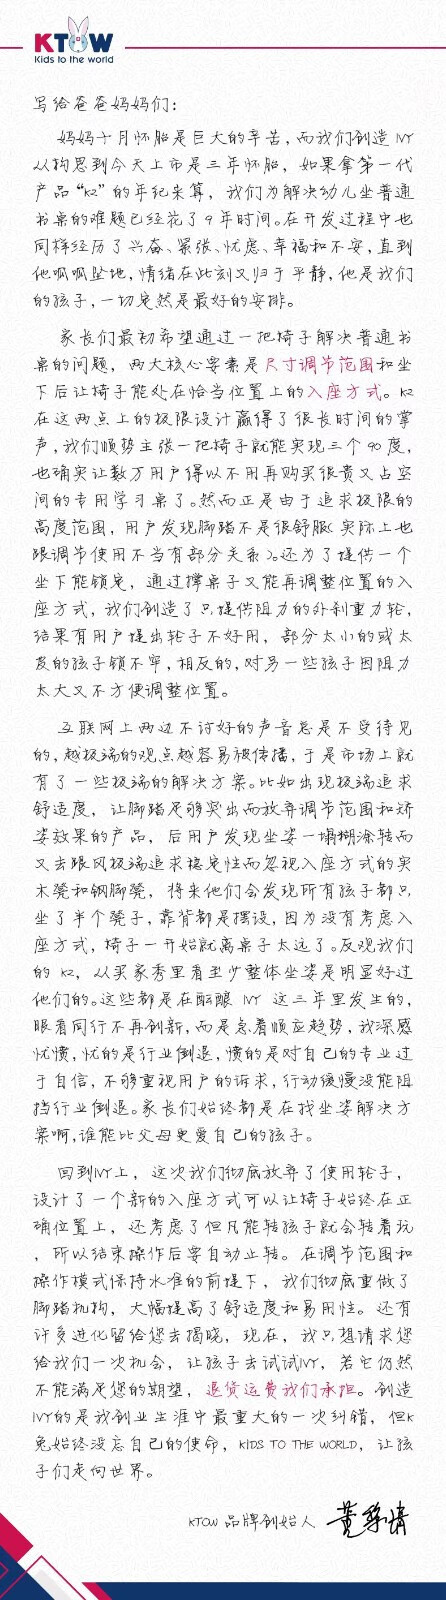 KTOW
Kids to the world
写给爸爸妈妈们：
妈妈十月怀胎是巨大的辛苦，而我们创造IVY
从构思到今天上市是三年怀胎，如果拿第一代
产品“K2”的年纪来算，我们为解决幼儿坐普通
书桌的难题已经花了9年时间。在开发过程中也
同样经历了兴奋、紧张、忧虑、幸福和不安，直到
他呱呱坠地，情绪在此刻又归于平静，他是我们
的孩子，一切定然是最好的安排。
家长们最初希望通过一把椅子解决普通书
桌的问题，两大核心要素是尺寸调节范围和坐
下后让椅子能处在恰当位置上的入座方式。K2
在这两点上的极限设计赢得了很长时间的掌
声，我们顺势主张一把椅子就能实现三个90度，
也确实让数万用户得以不用再购买很贵又占空
间的专用学习桌了。然而正是由于追求极限的
高度范围，用户发现脚踏不是很舒服（实际上也
跟调节使用不当有部分关系）。还为了提供一个
坐下能锁定，通过撑桌子又能再调整位置的入
座方式，我们创造了只提供阻力的外刹重力轮，
结果有用户提出轮子不好用，部分太小的或太
皮的孩子锁不牢，相反的，对另一些孩子因阻力
太大又不方便调整位置。
互联网上两边不讨好的声音总是不受待见
的，越极端的观点越容易被传播，于是市场上就
有了一些极端的解决方案。比如出现极端追求
舒适度，让脚踏足够突出而放弃调节范围和矫
姿效果的产品，后用户发现坐姿一塌糊涂转而
又去跟风极端追求稳定性而忽视入座方式的实
木凳和钢脚凳，将来他们会发现所有孩子都只
坐了半个凳子，靠背都是摆设，因为没有考虑入
座方式，椅子一开始就离桌子太远了。反观我们
的K2，从买家秀里看至少整体坐姿是明显好过
他们的。这些都是在酝酿IVY这三年里发生的，
眼看同行不再创新，而是急着顺应趋势，我深感
忧愤，忧的是行业倒退，愤的是对自己的专业过
于自信，不够重视用户的诉求，行动缓慢没能阻
挡行业倒退。家长们始终都是在找坐姿解决方
案啊，谁能比父母更爱自己的孩子。
回到IVY上，这次我们彻底放弃了使用轮子，
设计了一个新的入座方式可以让椅子始终在正
确位置上，还考虑了但凡能转孩子就会转着玩
，所以结束操作后要自动止转。在调节范围和
操作模式保持水准的前提下，我们彻底重做了
脚踏机构，大幅提高了舒适度和易用性。还有
许多进化留给您去揭晓，现在，我只想请求您
给我们一次机会，让孩子去试试IVY，若它仍然
不能满足您的期望，退货运费我们承担。创造
IVY的是我创业生涯中最重大的一次纠错，但K
兔始终没忘自己的使命，KIDS TO THE WORLD，让孩
子们走向世界。
KTOW 品牌创始人